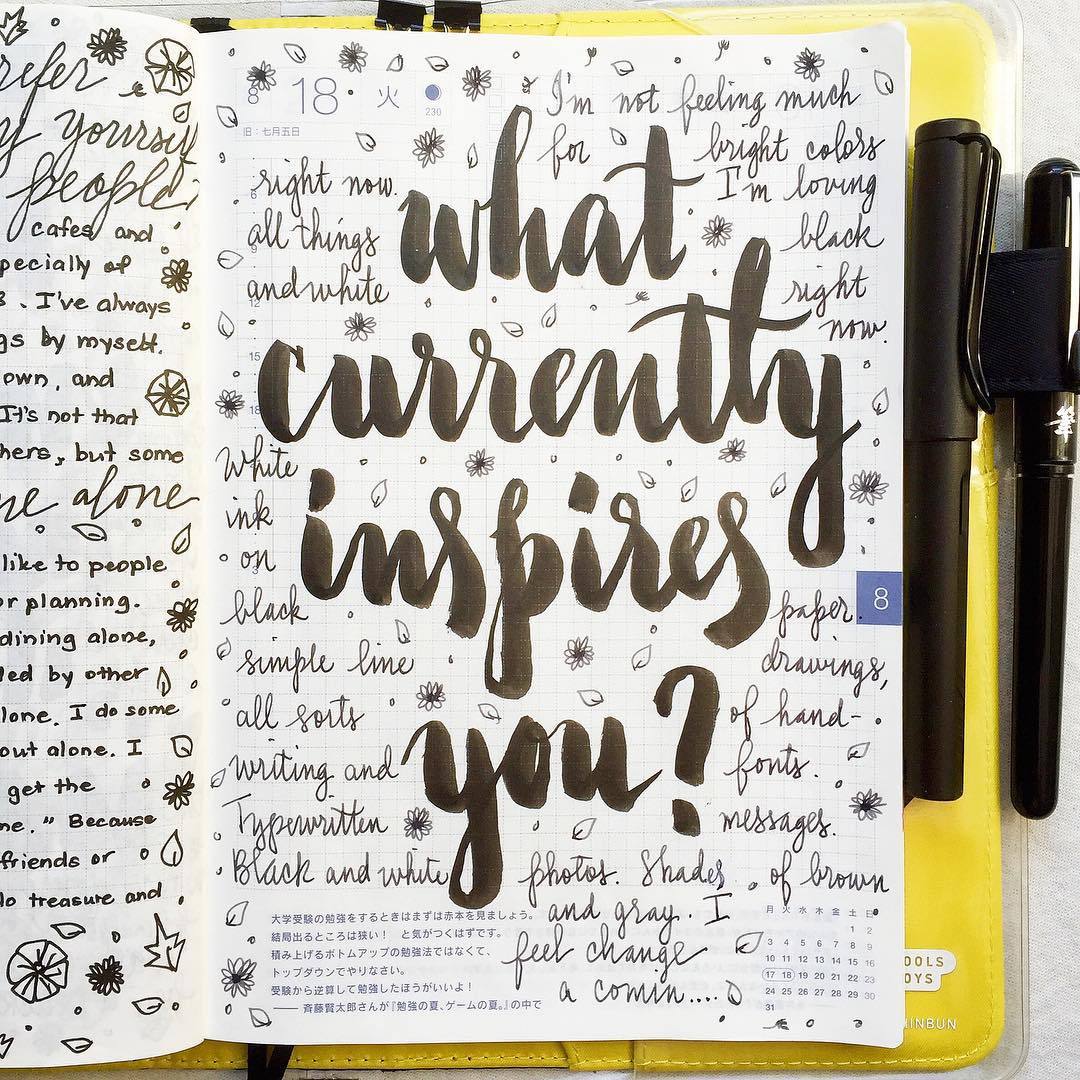 refer
y yourself
people
cafes and
pecially of
. I've always
gs by myself.
own, and
It's not that
hers, but some
ne alone
like to people
or planning.
dining alone,
led by other
lone. I do some
out alone. I
get the
ne." Because
friends or
do treasure and
8 18 火 230
旧:七月五日
I'm not feeling much
for bright colors
right now. I'm loving
all things black
and white right
now.
what
currently
inspires
you?
6
9
12
15
18
White
ink
on
black paper
simple line drawings,
all sorts of hand-
writing and fonts.
Typewritten messages.
Black and white photos. Shades of brown
and gray. I
feel change
a comin....
8
大学受験の勉強をするときはまずは赤本を見ましょう。
結局出るところは狭い! と気がつくはずです。
積み上げるボトムアップの勉強法ではなくて、
トップダウンでやりなさい。
受験から逆算して勉強したほうがいいよ!
―― 斉藤賢太郎さんが『勉強の夏、ゲームの夏。』の中で
月 火 水 木 金 土 日
1 2
3 4 5 6 7 8 9
10 11 12 13 14 15 16
17 18 19 20 21 22 23
24 25 26 27 28 29 30
31
OOLS
OYS
HINBUN
筆